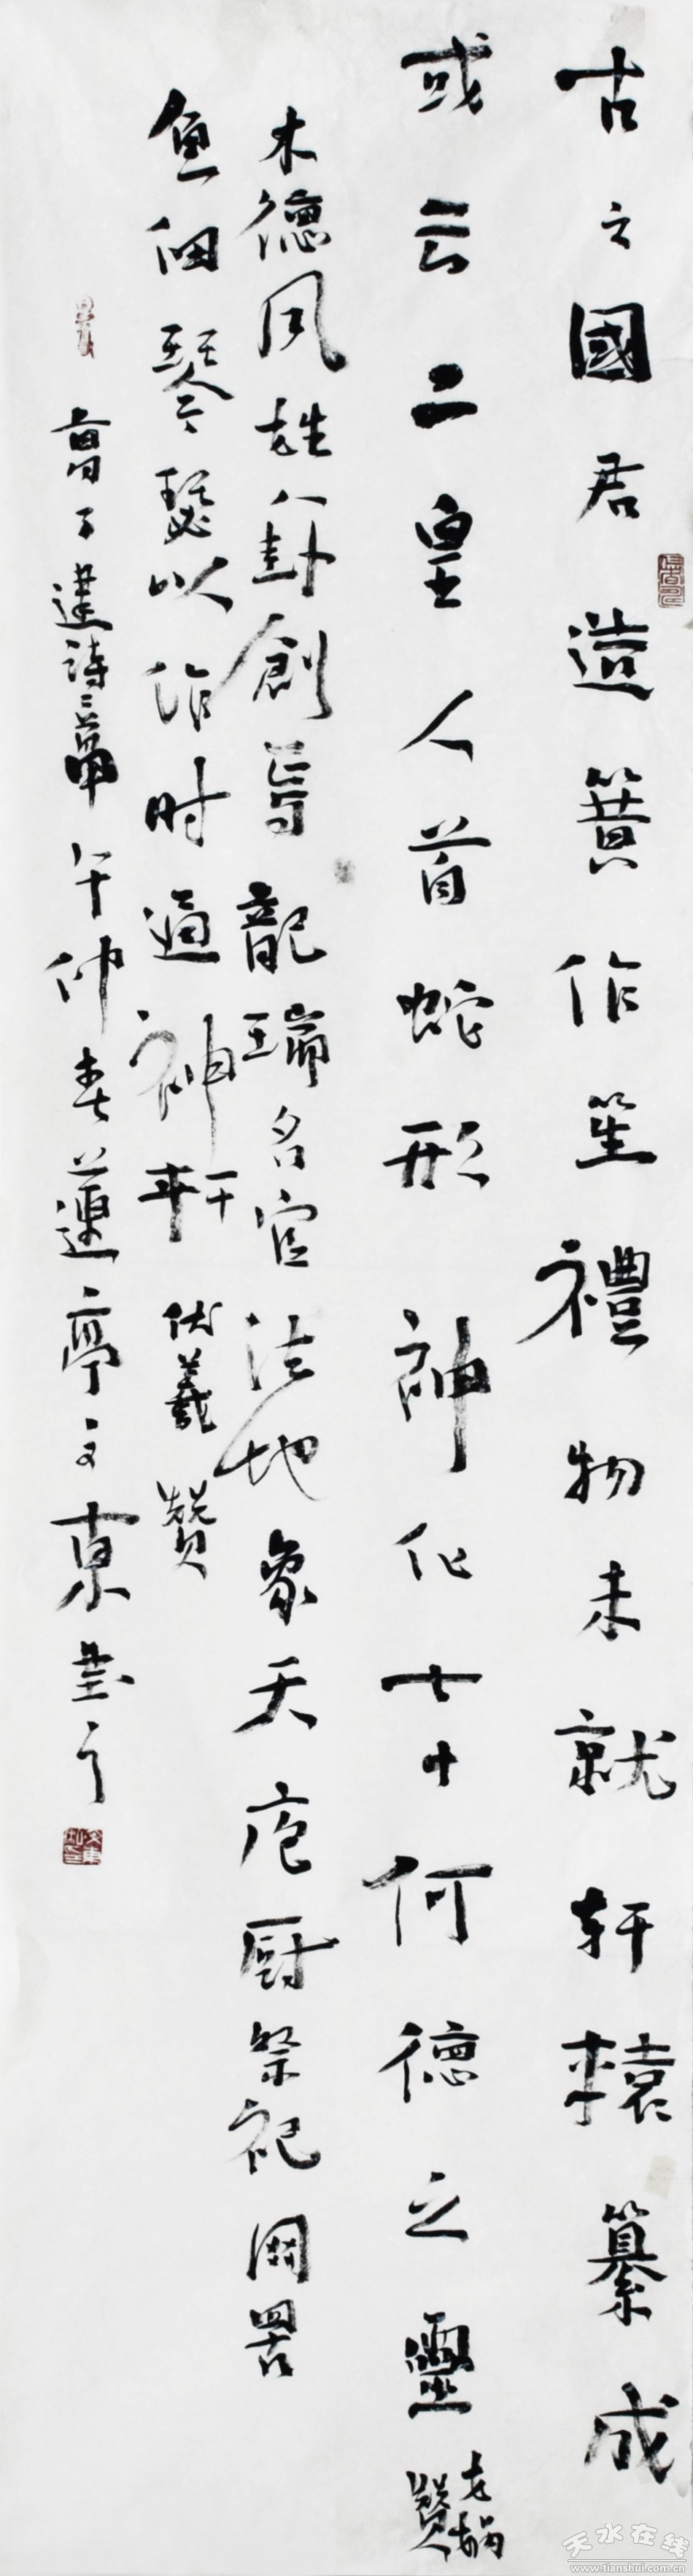 古之國君造簧作笙禮物未就軒轅纂成
或云二皇人首蛇形神化七十何德之靈 女媧贊
木德風姓八卦創焉龍瑞名官法地象天庖厨祭祀罔罟
魚佃琴瑟以作时通神軒 伏羲贊
曹子建詩二章 午仲春蓮亭文東書之
天水在线
www.tianshui.com.cn